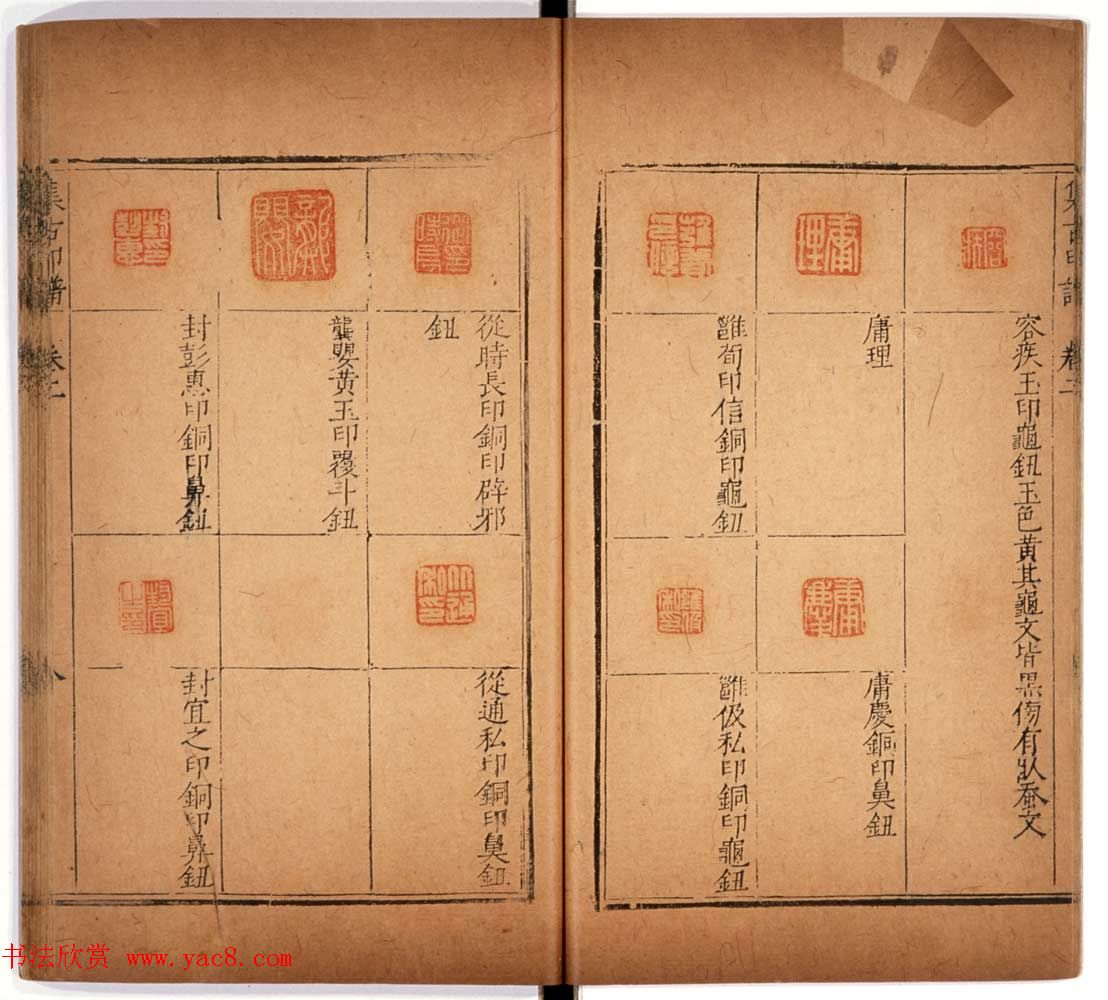 集古印譜 卷二
容疾玉印龜鈕玉色黃其龜文皆黑傷有蚕文
庸理
庸慶銅印鼻鈕
荀印信銅印龜鈕
伋私印銅印龜鈕
從時長印銅印辟邪
鈕
從通私印銅印鼻鈕
龔嬰黃玉印覆斗鈕
封彭惠印銅印鼻鈕
封宜之印銅印鼻鈕
集古印譜 卷二
八
书法欣赏 www.yac8.com